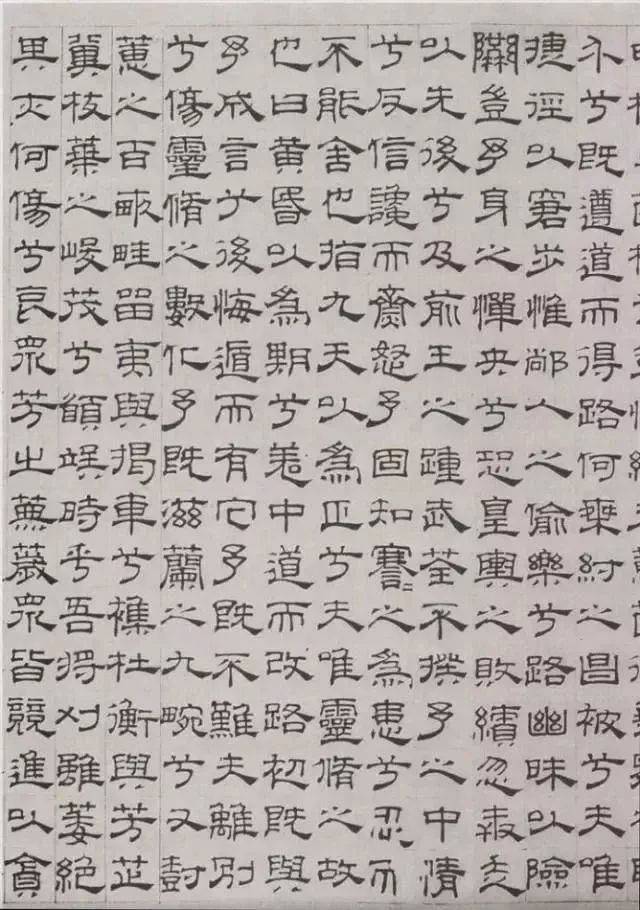 介兮既遵道而得路何桀紂之昌被兮夫唯
捷徑以窘步惟䣊人之偷樂兮路幽昧以險
豈予身之憚央兮恐皇輿之敗績忽奔走
以先後兮及前王之踵武荃不揆予之中情
兮反信讒而齌怒予固知謇=之為患兮忍而
不能舍也指九天以為正兮夫唯靈脩之故
也曰黃昏以為期兮羌中道而改路初既與
予成言兮後悔遁而有它予既不難夫離別
兮傷靈脩之數化予既滋蘭之九畹兮又樹
蕙之百畝畦留夷與揭車兮雜杜衡與芳芷
冀枝葉之峻茂兮願竢時乎吾將刈雖萎絕
其亦何傷兮哀眾芳之蕪薉眾皆競進以貪